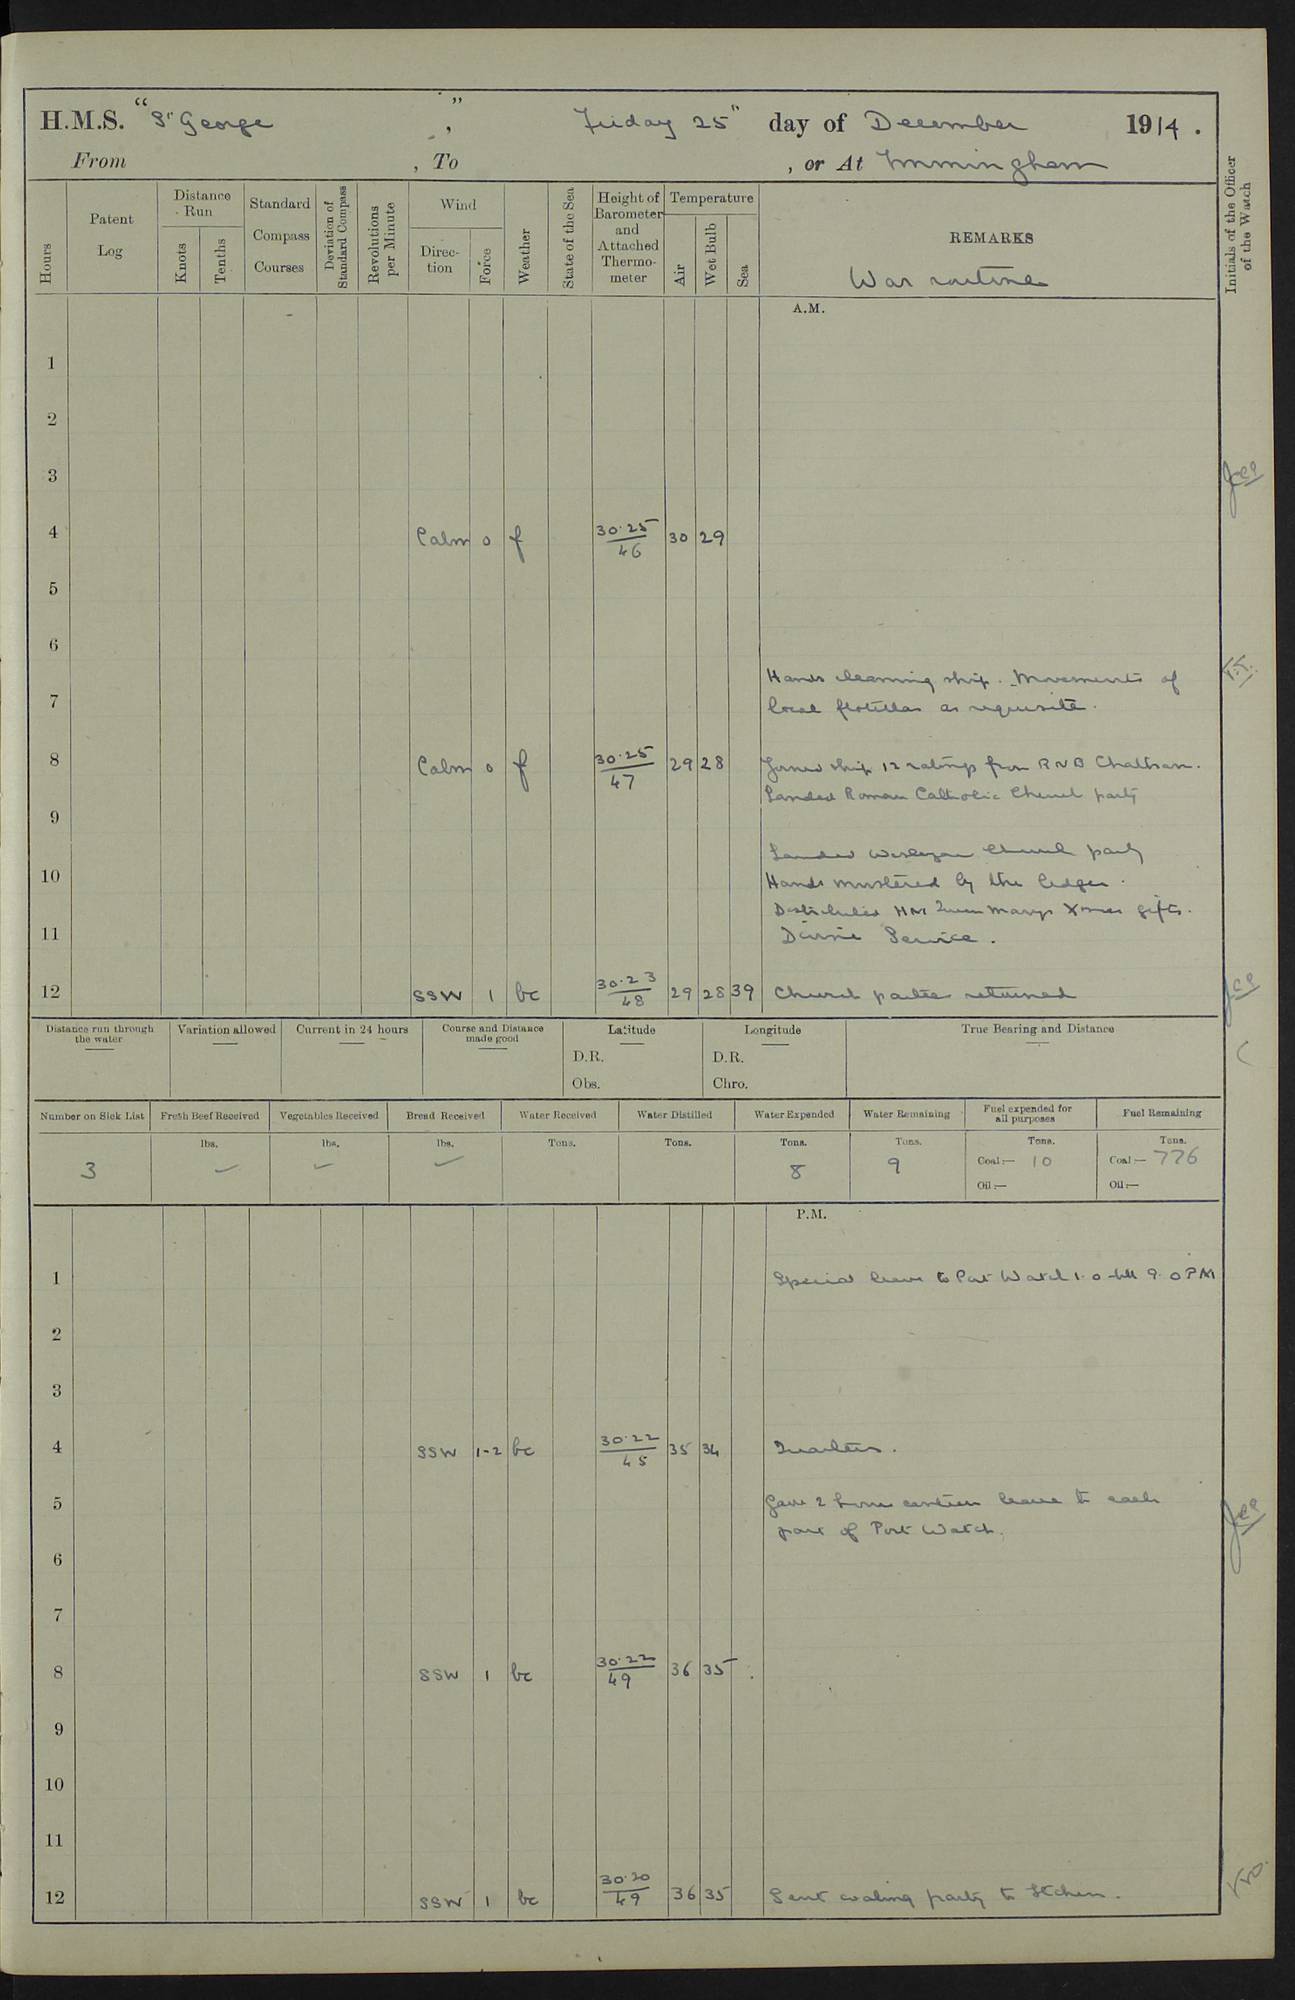 H.M.S. "St George", Friday 25th day of December 1914.
From , To , or At Immingham
Hours
Patent Log
Distance Run
Knots
Tenths
Standard Compass Courses
Deviation of Standard Compass
Revolutions per Minute
Wind
Direction
Force
Weather
State of the Sea
Height of Barometer and Attached Thermometer
Temperature
Air
Wet Bulb
Sea
REMARKS
War routine
Initials of the Officer of the Watch
A.M.
1
2
3
4 Calm 0 f 30.25/46 30 29
5
6
Hands cleaning ship. Movements of
7 local flotillas as requisite.
8 Calm 0 f 30.25/47 29 28 Joined ship 12 ratings from RNB Chatham.
Landed Roman Catholic Church party
9
Landed Wesleyan Church party
10 Hands mustered by the ledger.
Distributed HM Queen Marys Xmas gifts.
11 Divine Service.
12 SSW 1 bc 30.23/48 29 28 39 Church parties returned
Distance run through the water
Variation allowed
Current in 24 hours
Course and Distance made good
Latitude
D.R.
Obs.
Longitude
D.R.
Chro.
True Bearing and Distance
Number on Sick List
3
Fresh Beef Received
lbs.
Vegetables Received
lbs.
Bread Received
lbs.
Water Received
Tons.
Water Distilled
Tons.
Water Expended
Tons.
8
Water Remaining
Tons.
9
Fuel expended for all purposes
Tons.
Coal:— 10
Oil:—
Fuel Remaining
Tons.
Coal:— 776
Oil:—
P.M.
1 Special leave to Port Watch 1.0 till 9.0 PM
2
3
4 SSW 1-2 bc 30.22/45 35 34 Quarters.
5 Gave 2 hours canteen leave to each
part of Port Watch.
6
7
8 SSW 1 bc 30.22/49 36 35
9
10
11
12 SSW 1 bc 30.20/49 36 35 Sent coaling party to Itchen.